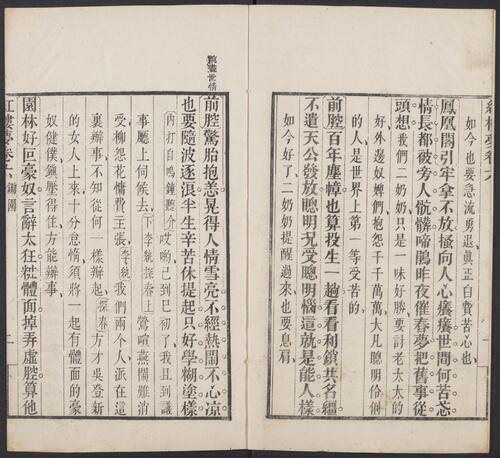 紅樓夢卷六
如今也要急流勇退眞正白費苦心也
鳳凰閣引牢拿不放搔向人心癢癢世間何苦恋
情長都被旁人骯髒啼鵑昨夜催春夢把舊事從
頭想我們二奶奶只是一味好勝要討老太太的
好外邊奴婢們抱怨千千萬萬大凡聰明伶俐
的人是世界上第一等受苦的
前腔百年塵幛也算投生一趟看看利鎖共名繮
不遣天公發放聰明况受聰明惱這就是能人樣
如今好了二奶奶提醒過來也要息肩
飽盡世情
前腔驚胎抱恙晃得人情雪亮不經熱鬧不心凉
也要隨波逐浪半生辛苦休提起只好學糊塗樣
内打自鳴鐘聲介哎喲已到巳初了我且到議
事廳上伺候去下李紈探春上鶯喧燕鬧難消
受柳怨花慵費主張李紈我們兩个人派在這
裏辦事不知從何一樣辦起探春方才吳登新
的女人上來十分怠惰須將一起有體面的豪
奴健僕鎭壓得住方能辦事
園林好叵豪奴言辭太狂粧體面掉弄虛腔算他
紅樓夢卷六 鍚園 一